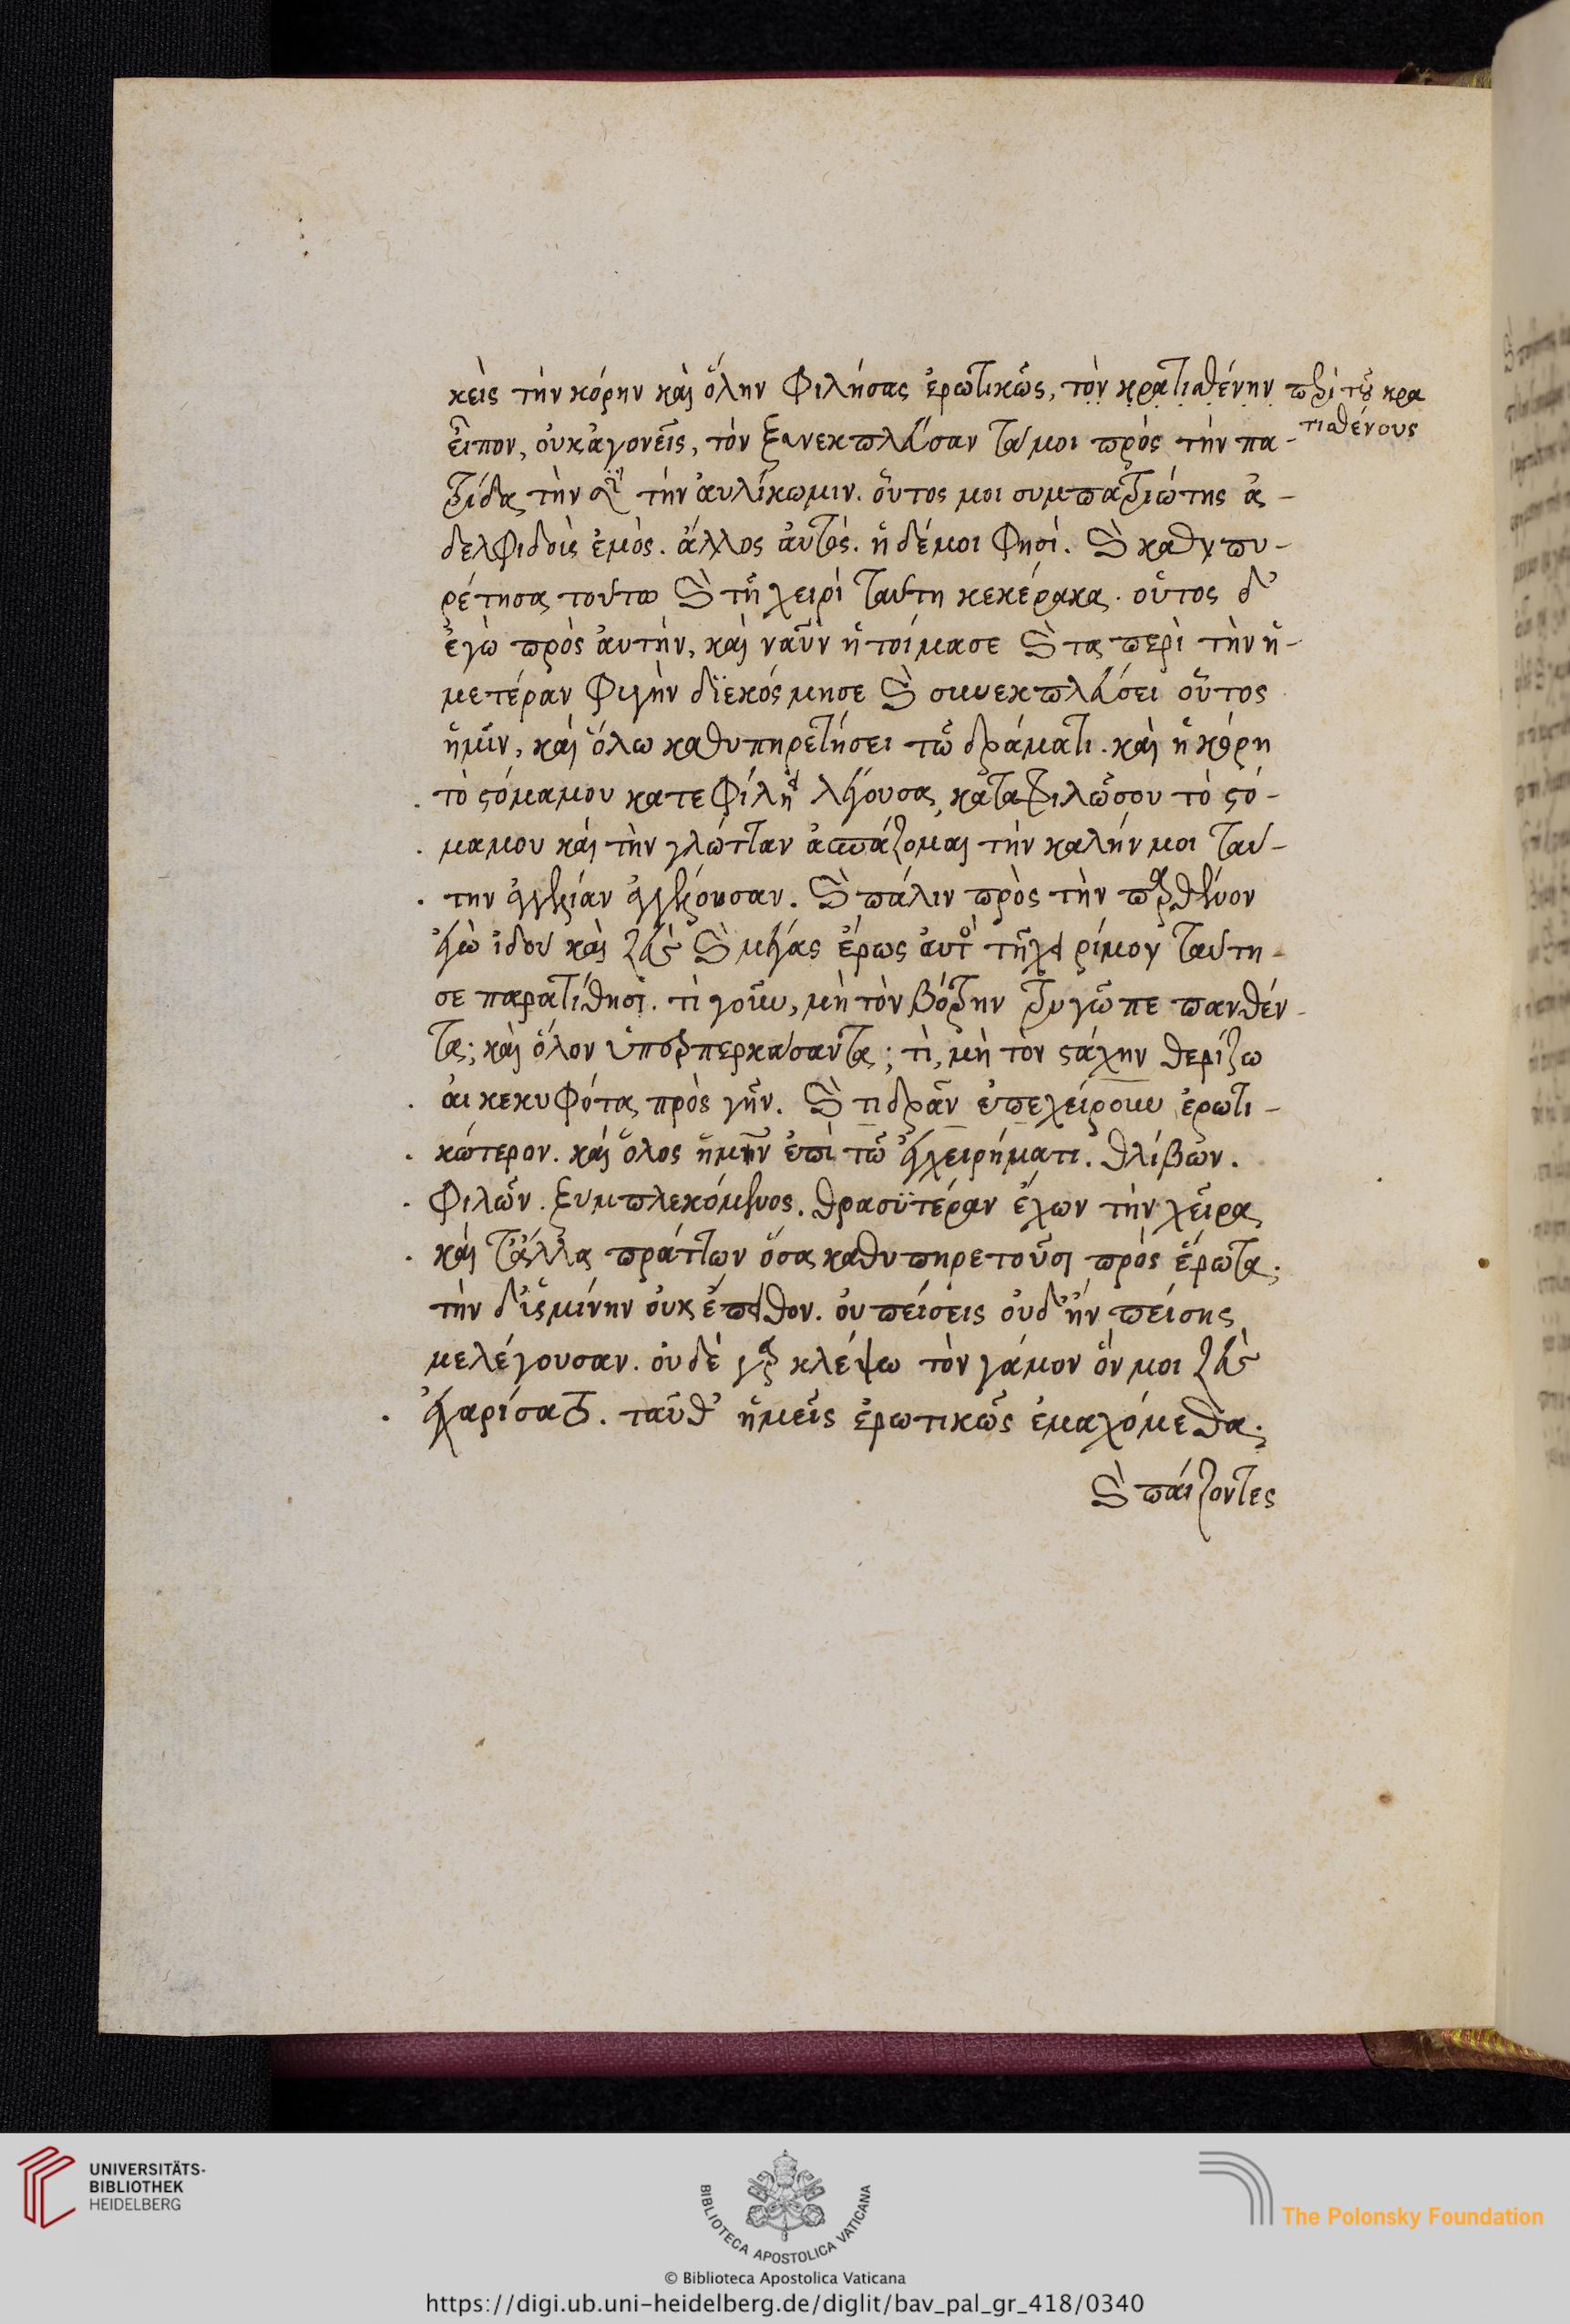 κεὶς τὴν κόρην καὶ ὅλην φιλήσας ἐρωτικῶς, τὸν κρατισθένην
περὶ τοῦ κρα
τισθένους
εἶπον, οὐκ ἀγονεῖς, τὸν ξυνεκπλεύσαντά μοι πρὸς τὴν πα-
τρίδα τὴν σὴν τὴν αὐλίκωμιν. οὗτος μοι συμπατριώτης ἀ-
δελφιδοῖς ἐμὸς. ἄλλος αὐτὸς. ἡ δέ μοι φησί. καὶ καθυπη-
ρέτησα τούτω καὶ τῆ χειρὶ ταύτη κεκέρακα. οὗτος δ'
ἐγὼ πρὸς αὐτήν, καὶ ναῦν ἡτοίμασε καὶ τα περὶ τὴν ἡ-
μετέραν φυγὴν διεκόσμησε καὶ συνεκπλεύσει οὗτος
ἡμῖν, καὶ ὅλω καθυπηρετήσει τῶ δράματι. καὶ ἡ κόρη
τὸ στόμα μου κατεφίλει λέγουσα, καταφιλῶ σου τὸ στό-
μα μου καὶ τὴν γλώτταν ἀσπάζομαι τὴν καλήν μοι ταύ-
την ἀγγελίαν ἀγγέλουσαν. καὶ πάλιν πρὸς τὴν παρθένον
ἐγὼ ἰδοὺ καὶ ζεὺς καὶ μέγας ἔρως αὐτὸ τῆ χειρί μου ταύτη
σε παρατίθησι. τί γοῦν, μὴ τὸν βότρυν τρυγῶ πεπανθέν-
τα; καὶ ὅλον ὑποπερκάσαντα; τί, μὴ τὸν στάχυν θερίζω
αι κεκυφότα πρὸς γῆν. καί τι δρᾶν ἐπεχείρουν ἐρωτι-
κώτερον. καὶ ὅλος ἤμην ἐπὶ τῶ ἐγχειρήματι. θλίβων.
φιλῶν. ξυμπλεκόμενος. θρασυτέραν ἔχων τὴν χεῖρα,
καὶ τἄλλα πράττων ὅσα καθυπηρετοῦσι πρὸς ἔρωτα.
τὴν δ' ὑσμίνην οὐκ ἔπειθον. οὐ πείσεις οὐδ' ἢν πείσης,
με λέγουσαν. οὐδὲ γὰρ κλέψω τὸν γάμον ὅν μοι ζεὺς
ἐχαρίσατο. ταῦθ' ἡμεῖς ἐρωτικῶς ἐμαχόμεθα.
καὶ παίζοντες
UNIVERSITÄTS-
BIBLIOTHEK
HEIDELBERG
BIBLIOTECA APOSTOLICA VATICANA
The Polonsky Foundation
© Biblioteca Apostolica Vaticana
https://digi.ub.uni-heidelberg.de/diglit/bav_pal_gr_418/0340